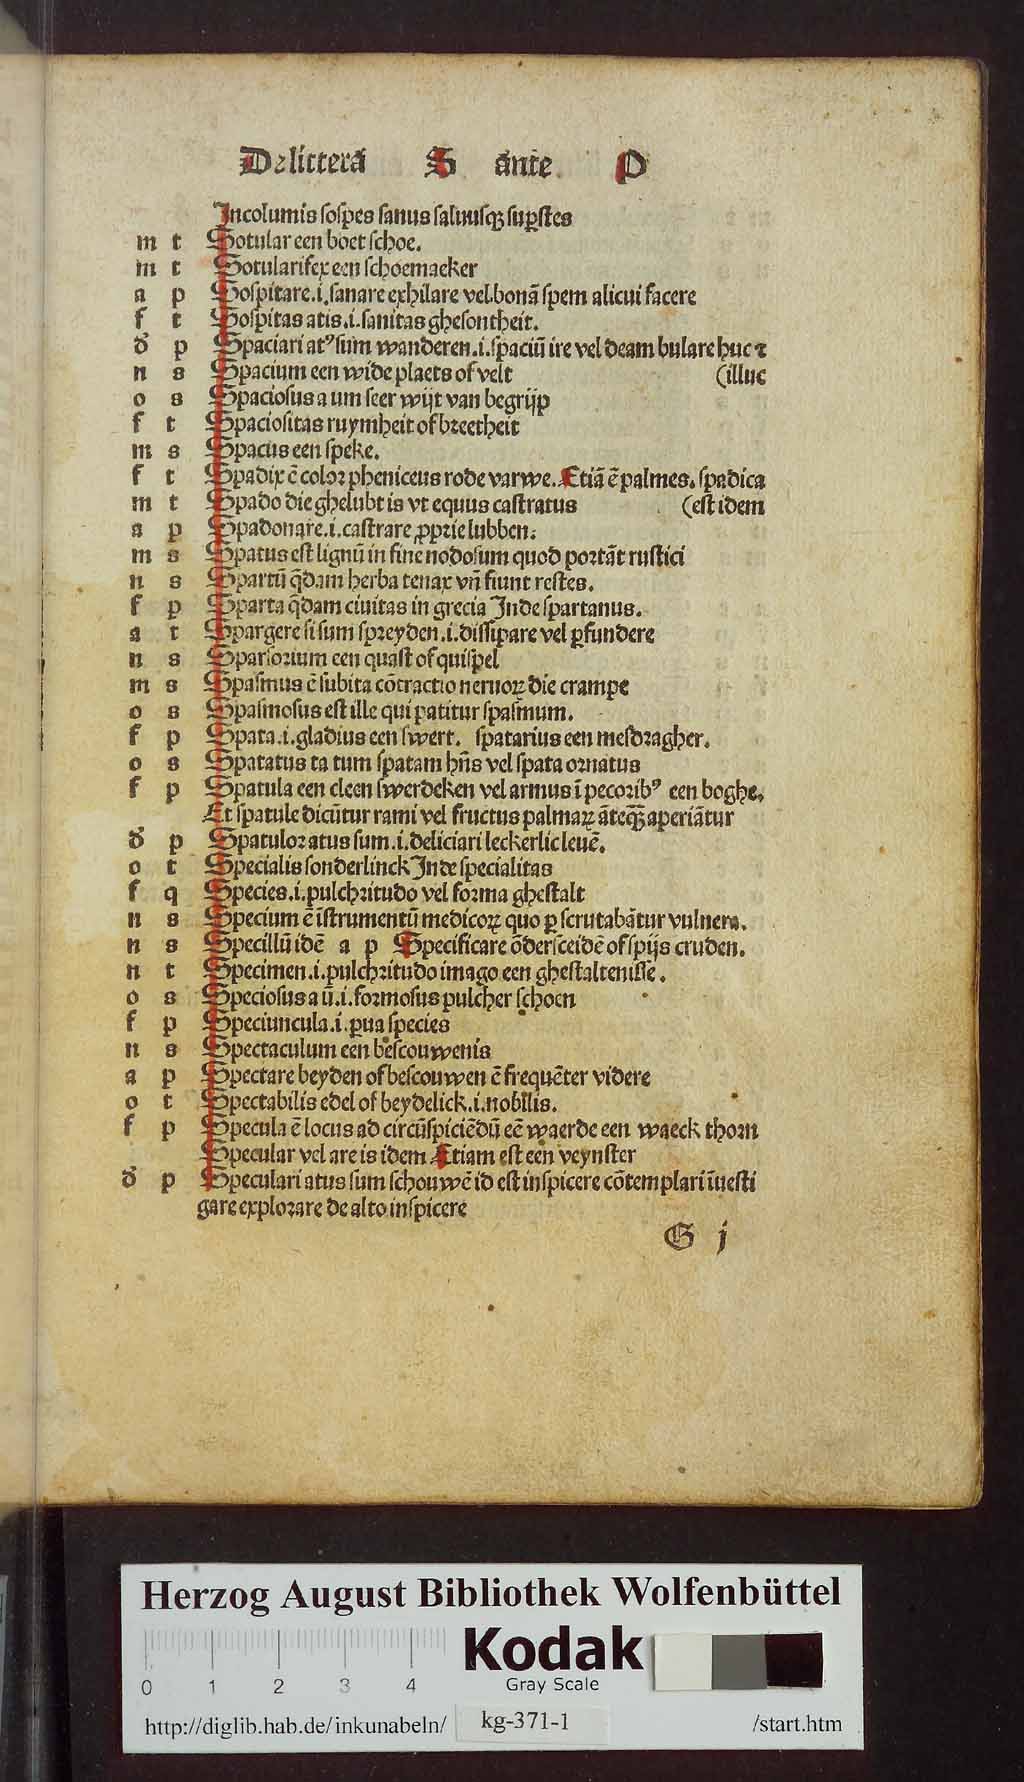 De litterā S ante P
Incolumis sospes sanus saluusqꝫ suꝑstes
m t Sotular een boet schoe.
m t Sotularifex een schoemaeker
a p Sospitare.i.sanare exhilare vel bonā spem alicui facere
f t Sospitas atis.i.sanitas ghesontheit.
d̕ p Spaciari atꝰ sum wanderen.i.spaciū ire vel deam bulare huc ⁊
n s Spacium een wide plaets of velt (illuc
o s Spaciosus a um seer wijt van begrijp
f t Spaciositas ruymheit of breetheit
m s Spacus een speke.
f t Spadix ē color pheniceus rode varwe. Etiā ē palmes. spadica
m t Spado die ghelubt is vt equus castratus (est idem
a p Spadonare.i.castrare ꝓprie lubben.
m s Spatus est lignū in fine nodosum quod portāt rustici
n s Spartū q̄dam herba tenax vn̄ fiunt restes.
f p Sparta q̄dam ciuitas in grecia Inde spartanus.
a t Spargere si sum spreyden.i.dissipare vel ꝑfundere
n s Sparsorium een quast of quispel
m s Spasmus ē subita cōtractio neruoꝝ die crampe
o s Spasmosus est ille qui patitur spasmum.
f p Spata.i.gladius een swert. spatarius een mesdragher.
o s Spatatus ta tum spatam hn̄s vel spata ornatus
f p Spatula een cleen swerdeken vel armus ī pecoribꝰ een boghe.
Et spatule dicūtur rami vel fructus palmaꝝ āteqꝫ aperiātur
d̕ p Spatulor atus sum.i.deliciari leckerlic leuē.
o t Specialis sonderlinck Inde specialitas
f q Species.i.pulchritudo vel forma ghestalt
n s Specium ē īstrumentū medicoꝝ quo ꝑ scrutabātur vulnera.
n s Specillū idē a p Specificare ōdersceidē of spijs cruden.
n t Specimen.i.pulchritudo imago een ghestaltenisse.
o s Speciosus a ū.i.formosus pulcher schoen
f p Speciuncula.i.ꝑua species
n s Spectaculum een bescouwenis
a p Spectare beyden of bescouwen ē frequēter videre
o t Spectabilis edel of beydelick.i.nobilis.
f p Specula ē locus ad circūspiciēdū eē waerde een waeck thorn
Specular vel are is idem Etiam est een veynster
d̕ p Speculari atus sum schouwē id est inspicere cōtemplari īuesti
gare explorare de alto inspicere
G j
Herzog August Bibliothek Wolfenbüttel
Kodak
Gray Scale
0 1 2 3 4
http://diglib.hab.de/inkunabeln/ kg-371-1 /start.htm